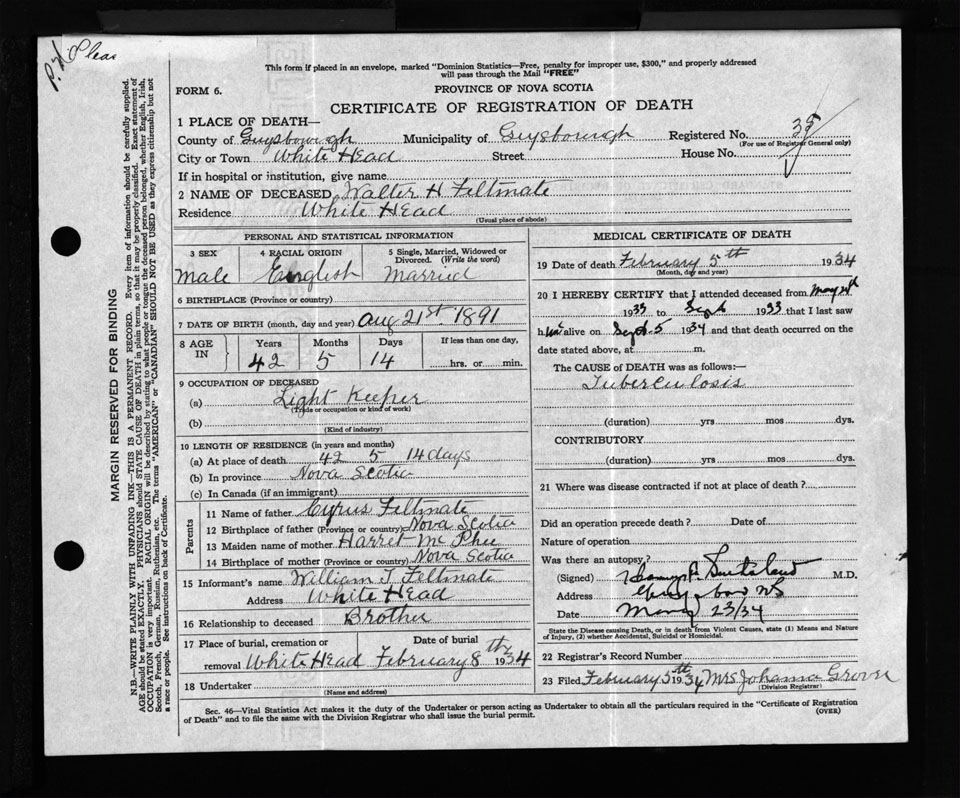 P.H. Pleas
This form if placed in an envelope, marked "Dominion Statistics—Free, penalty for improper use, $300," and properly addressed
will pass through the Mail "FREE"
FORM 6.
PROVINCE OF NOVA SCOTIA
CERTIFICATE OF REGISTRATION OF DEATH
1 PLACE OF DEATH—
County of Guysborough Municipality of Guysborough Registered No. 35
(For use of Registrar General only)
City or Town White Head Street House No.
If in hospital or institution, give name
2 NAME OF DECEASED Walter H Feltmate
Residence White Head
(Usual place of abode)
PERSONAL AND STATISTICAL INFORMATION
3 SEX 4 RACIAL ORIGIN 5 Single, Married, Widowed or
Divorced. (Write the word)
Male English Married
6 BIRTHPLACE (Province or country)
7 DATE OF BIRTH (month, day and year) Aug 21st 1891
8 AGE IN Years Months Days If less than one day,
42 5 14 hrs. or min.
9 OCCUPATION OF DECEASED
(a) Light Keeper
(Trade or occupation or kind of work)
(b)
(Kind of industry)
10 LENGTH OF RESIDENCE (in years and months)
(a) At place of death 42 5 14 days
(b) In province Nova Scotia
(c) In Canada (if an immigrant)
Parents
11 Name of father Cyrus Feltmate
12 Birthplace of father (Province or country) Nova Scotia
13 Maiden name of mother Harriet Mc Phee
14 Birthplace of mother (Province or country) Nova Scotia
15 Informant's name William T Feltmate
Address White Head
16 Relationship to deceased Brother
17 Place of burial, cremation or Date of burial
removal White Head February 8th 1934
18 Undertaker
(Name and address)
MEDICAL CERTIFICATE OF DEATH
19 Date of death February 5th 1934
(Month, day and year)
20 I HEREBY CERTIFY that I attended deceased from May
1933 to Sept 1933 that I last saw
him alive on Sept. 5 1934 and that death occurred on the
date stated above, at m.
The CAUSE OF DEATH was as follows:—
Tuberculosis
(duration) yrs mos dys.
CONTRIBUTORY
(duration) yrs mos dys.
21 Where was disease contracted if not at place of death?
Did an operation precede death? Date of
Nature of operation
Was there an autopsy?
(Signed) M.D.
Address NS
Date 23/34
State the Disease causing Death, or in death from Violent Causes, state (1) Means and Nature
of Injury, (2) whether Accidental, Suicidal or Homicidal.
22 Registrar's Record Number
23 Filed February 5th 1934 Mrs Johanna Grover
(Division Registrar)
Sec. 46—Vital Statistics Act makes it the duty of the Undertaker or person acting as Undertaker to obtain all the particulars required in the "Certificate of Registration
of Death" and to file the same with the Division Registrar who shall issue the burial permit.
(OVER)
MARGIN RESERVED FOR BINDING
N.B.—WRITE PLAINLY WITH UNFADING INK—THIS IS A PERMANENT RECORD. Every item of information should be carefully supplied.
AGE should be stated EXACTLY. PHYSICIANS should STATE CAUSE OF DEATH in plain terms, so that it may be properly classified. Exact statement of
OCCUPATION is very important. RACIAL ORIGIN will be described by stating to what people or tongue the deceased person belonged, whether English, Irish,
Scotch, French, German, Russian, Ruthenian, etc. The terms "AMERICAN" or "CANADIAN" SHOULD NOT BE USED as they express citizenship but not
a race or people. See instructions on back of Certificate.